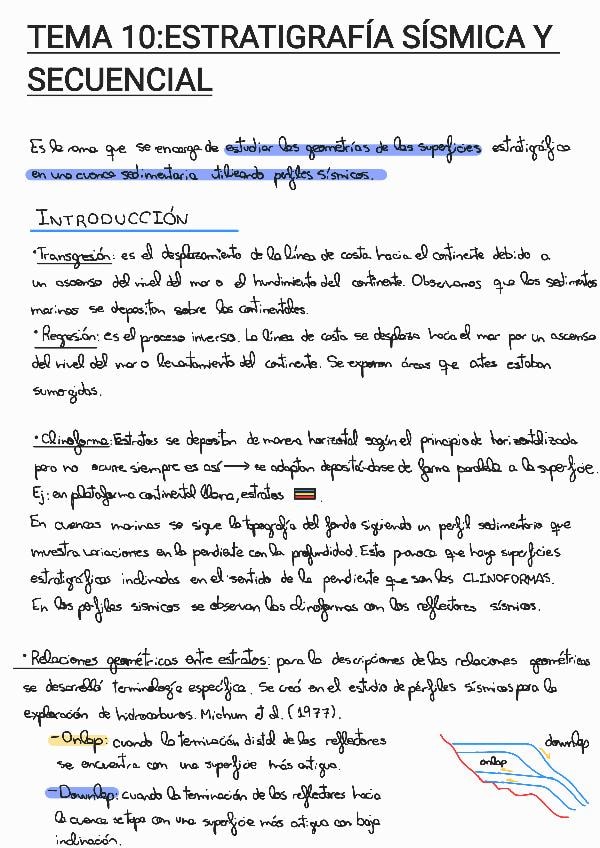 TEMA 10:ESTRATIGRAFÍA SÍSMICA Y
SECUENCIAL
Es la rama que se encarga de estudiar las geometrías de las superficies estratigráfica
en una cuenca sedimentaria utilizando perfiles sísmicos.
INTRODUCCIÓN
·Transgresión: es el desplazamiento de la línea de costa hacia el continente debido a
un ascenso del nivel del mar o el hundimiento del continente. Observamos que los sedimentos
marinos se depositan sobre los continentales.
·Regresión: es el proceso inverso. La línea de costa se desplaza hacia el mar por un ascenso
del nivel del mar o levantamiento del continente. Se exponen áreas que antes estaban
sumergidas.
·Clinoforma: Estratos se depositan de manera horizontal según el principio de horizontalidad
pero no ocurre siempre es así → se adaptan depositándose de forma paralela a la superficie.
Ej: en plataforma continental llana, estratos
En cuencas marinas se sigue la topografía del fondo siguiendo un perfil sedimentario que
muestra variaciones en la pendiente con la profundidad. Esto provoca que haya superficies
estratigráficas inclinadas en el sentido de la pendiente que son las CLINOFORMAS.
En los perfiles sísmicos se observan las clinoformas con los reflectores sísmicos.
·Relaciones geométricas entre estratos: para la descripciones de las relaciones geométricas
se desarrolló terminología específica. Se creó en el estudio de pérfiles sísmicos para la
exploración de hidrocarburos. Michum et al. (1977).
-Onlap: cuando la terminación distal de los reflectores
se encuentra con una superficie más antigua.
-Downlap: cuando la terminación de los reflectores hacia
la cuenca se topa con una superficie más antigua con baja
inclinación.
downlap
onlap